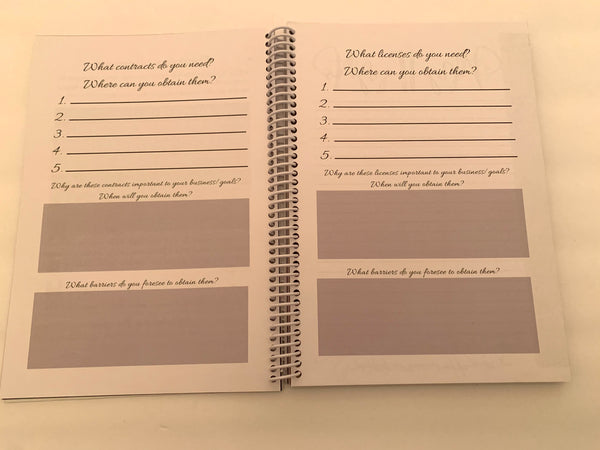 What contracts do you need?
Where can you obtain them?
1.
2.
3.
4.
5.
Why are these contracts important to your business/ goals?
When will you obtain them?
What barriers do you foresee to obtain them?
What licenses do you need?
Where can you obtain them?
1.
2.
3.
4.
5.
Why are these licenses important to your business/ goals?
When will you obtain them?
What barriers do you foresee to obtain them?